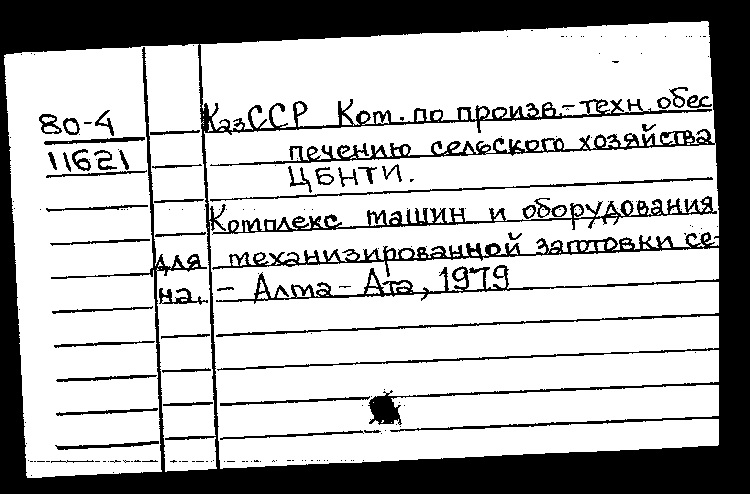 80-4
11621
КазССР Ком. по произв.-техн. обес
печению сельского хозяйства
ЦБНТИ.
Комплекс машин и оборудования
для механизированной заготовки се-
на. - Алма-Ата, 1979